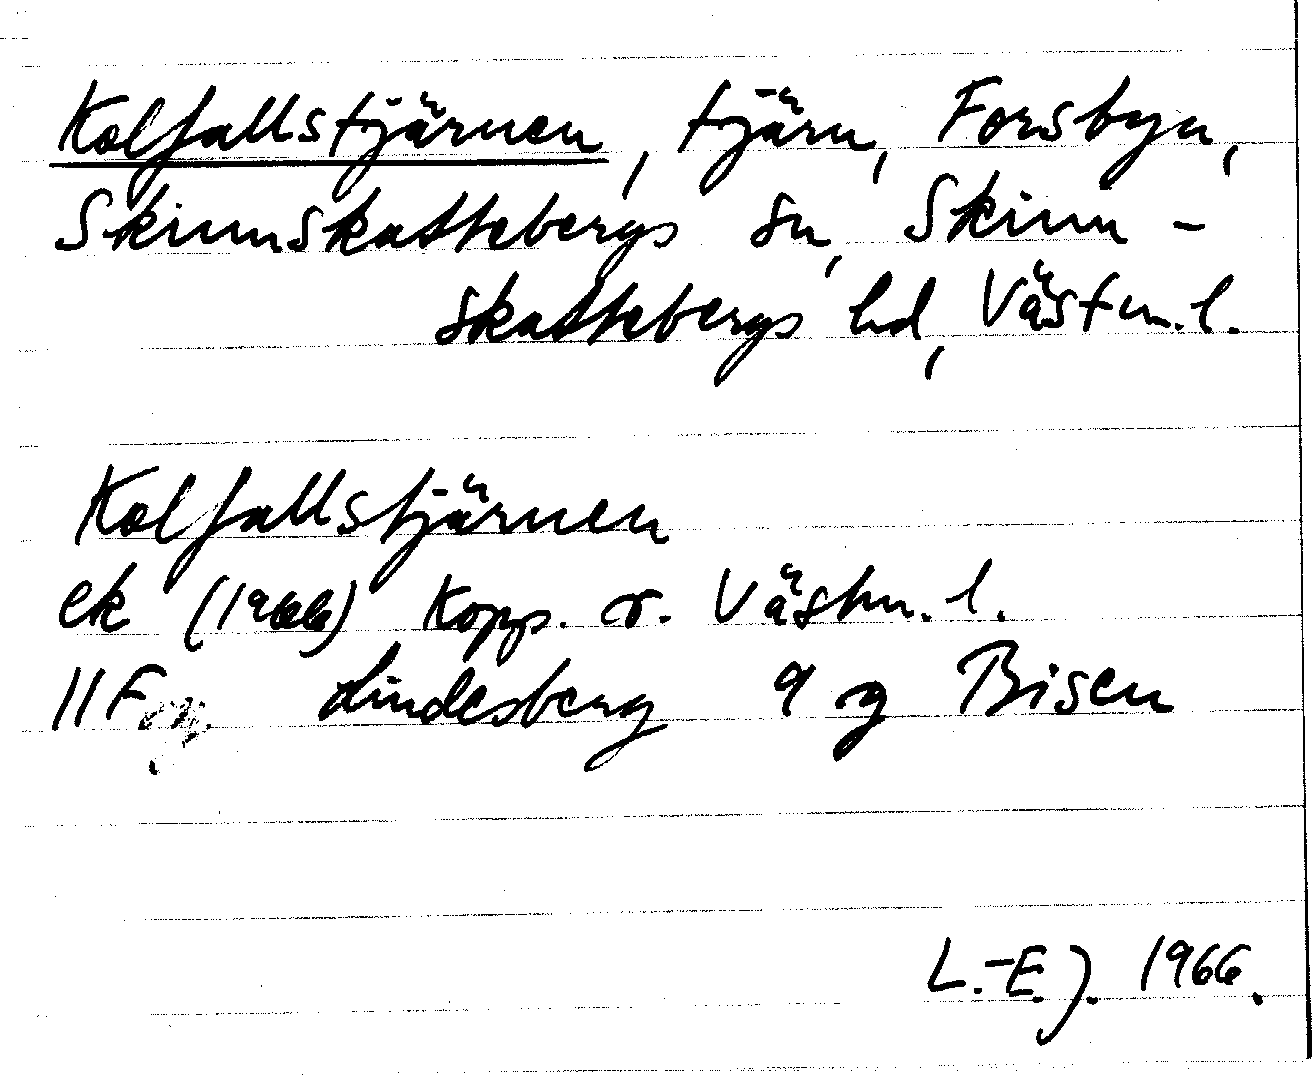 Kolfallstjärnen, tjärn, Forsbyn,
Skinnskattebergs sn, Skinn-
skattebergs hd, Västm.l.
Kolfallstjärnen
ek (1966) Kopp. o. Västm. l.
11F Lindesberg 9 g Bisen
L.-E.J. 1966.